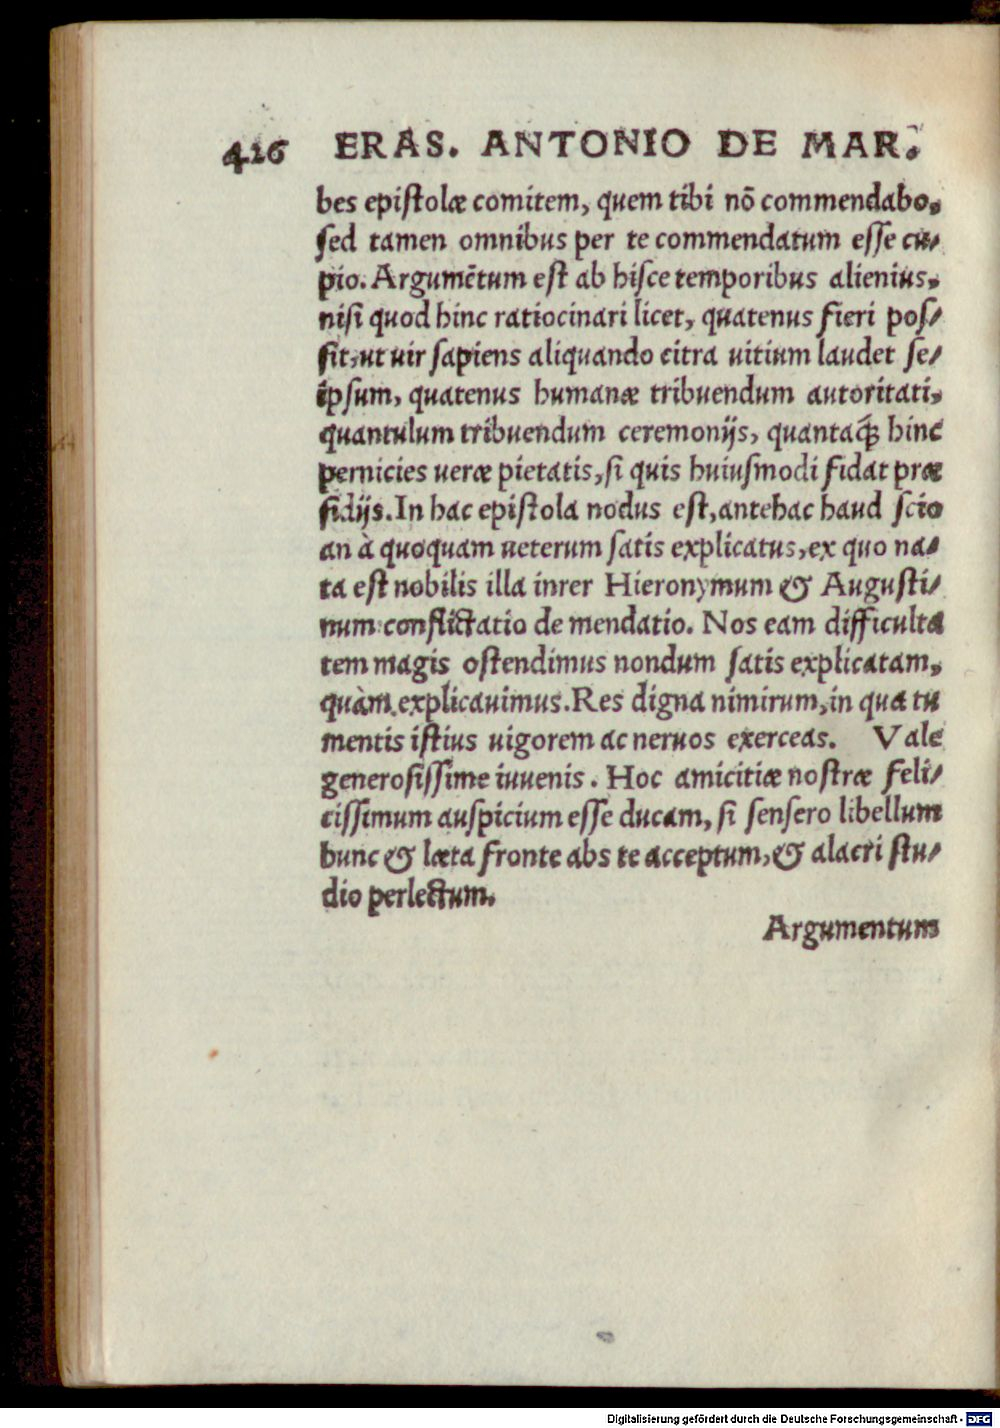 416 ERAS. ANTONIO DE MAR.
bes epiſtolæ comitem, quem tibi nō commendabo,
ſed tamen omnibus per te commendatum eſſe cu⸗
pio. Argumētum eſt ab hiſce temporibus alienius,
niſi quod hinc ratiocinari licet, quatenus fieri poſ⸗
ſit, ut uir ſapiens aliquando citra uitium laudet ſe⸗
ipſum, quatenus humanæ tribuendum autoritati,
quantulum tribuendum ceremonijs, quantaq́ꝫ hinc
pernicies ueræ pietatis, ſi quis huiuſmodi fidat præ
ſidijs. In hac epiſtola nodus eſt, antehac haud ſcio
an à quoquam ueterum ſatis explicatus, ex quo na⸗
ta eſt nobilis illa inrer Hieronymum & Auguſti⸗
num conflictatio de mendatio. Nos eam difficulta
tem magis oſtendimus nondum ſatis explicatam,
quàm explicauimus. Res digna nimirum, in qua tu
mentis iſtius uigorem ac neruos exerceas. Vale
generoſiſſime iuuenis. Hoc amicitiæ noſtræ feli⸗
ciſſimum auſpicium eſſe ducam, ſi ſenſero libellum
hunc & læta fronte abs te acceptum, & alacri ſtu⸗
dio perlectum.
Argumentum
Digitalisierung gefördert durch die Deutsche Forschungsgemeinschaft - DFG